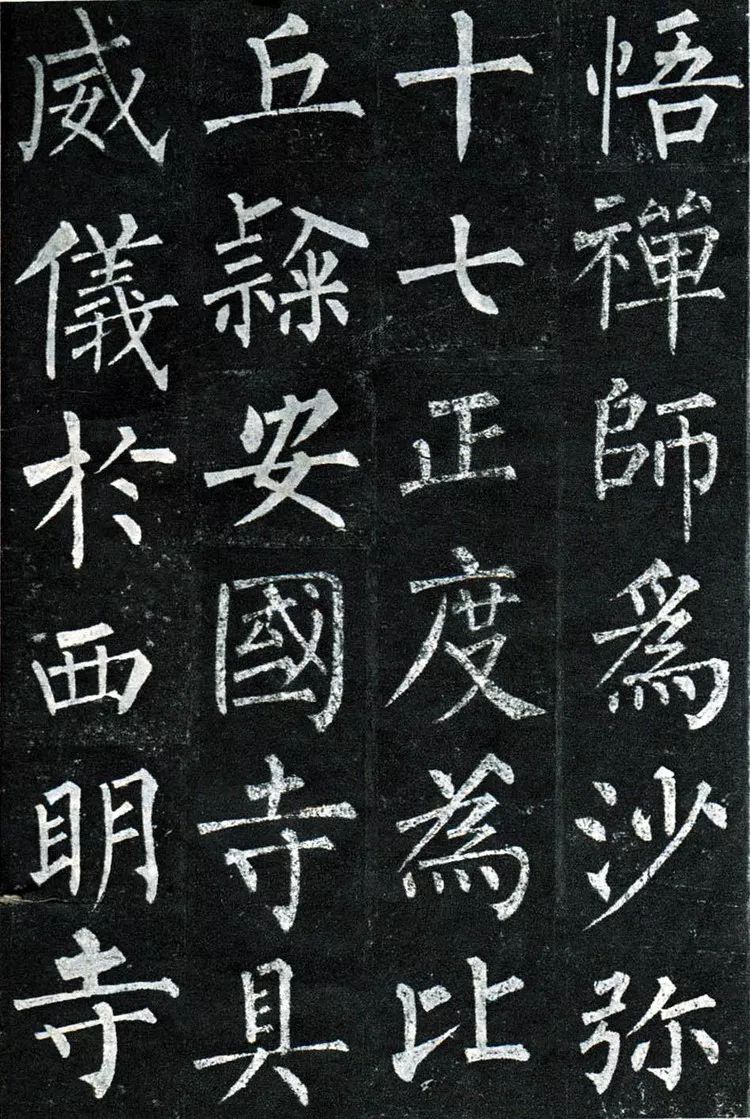 悟禪師為沙弥
十七正度為比
丘𥡴安國寺具
威儀於西明寺